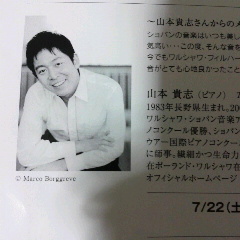 ～山本貴志さんからのメ
ショパンの音楽はいつも美し
気高い…この度、そんな音
今でもワルシャワ・フィルハー
音がとても心地良かったこと
山本 貴志（ピアノ）
1983年長野県生まれ。20
ワルシャワ・ショパン音楽ア
ノコンクール優勝、ショパ
ウアー国際ピアノコンクー
に師事。繊細かつ生命力
在ポーランド・ワルシャワ在
オフィシャルホームページ
© Marco Borggreve
7/22(土